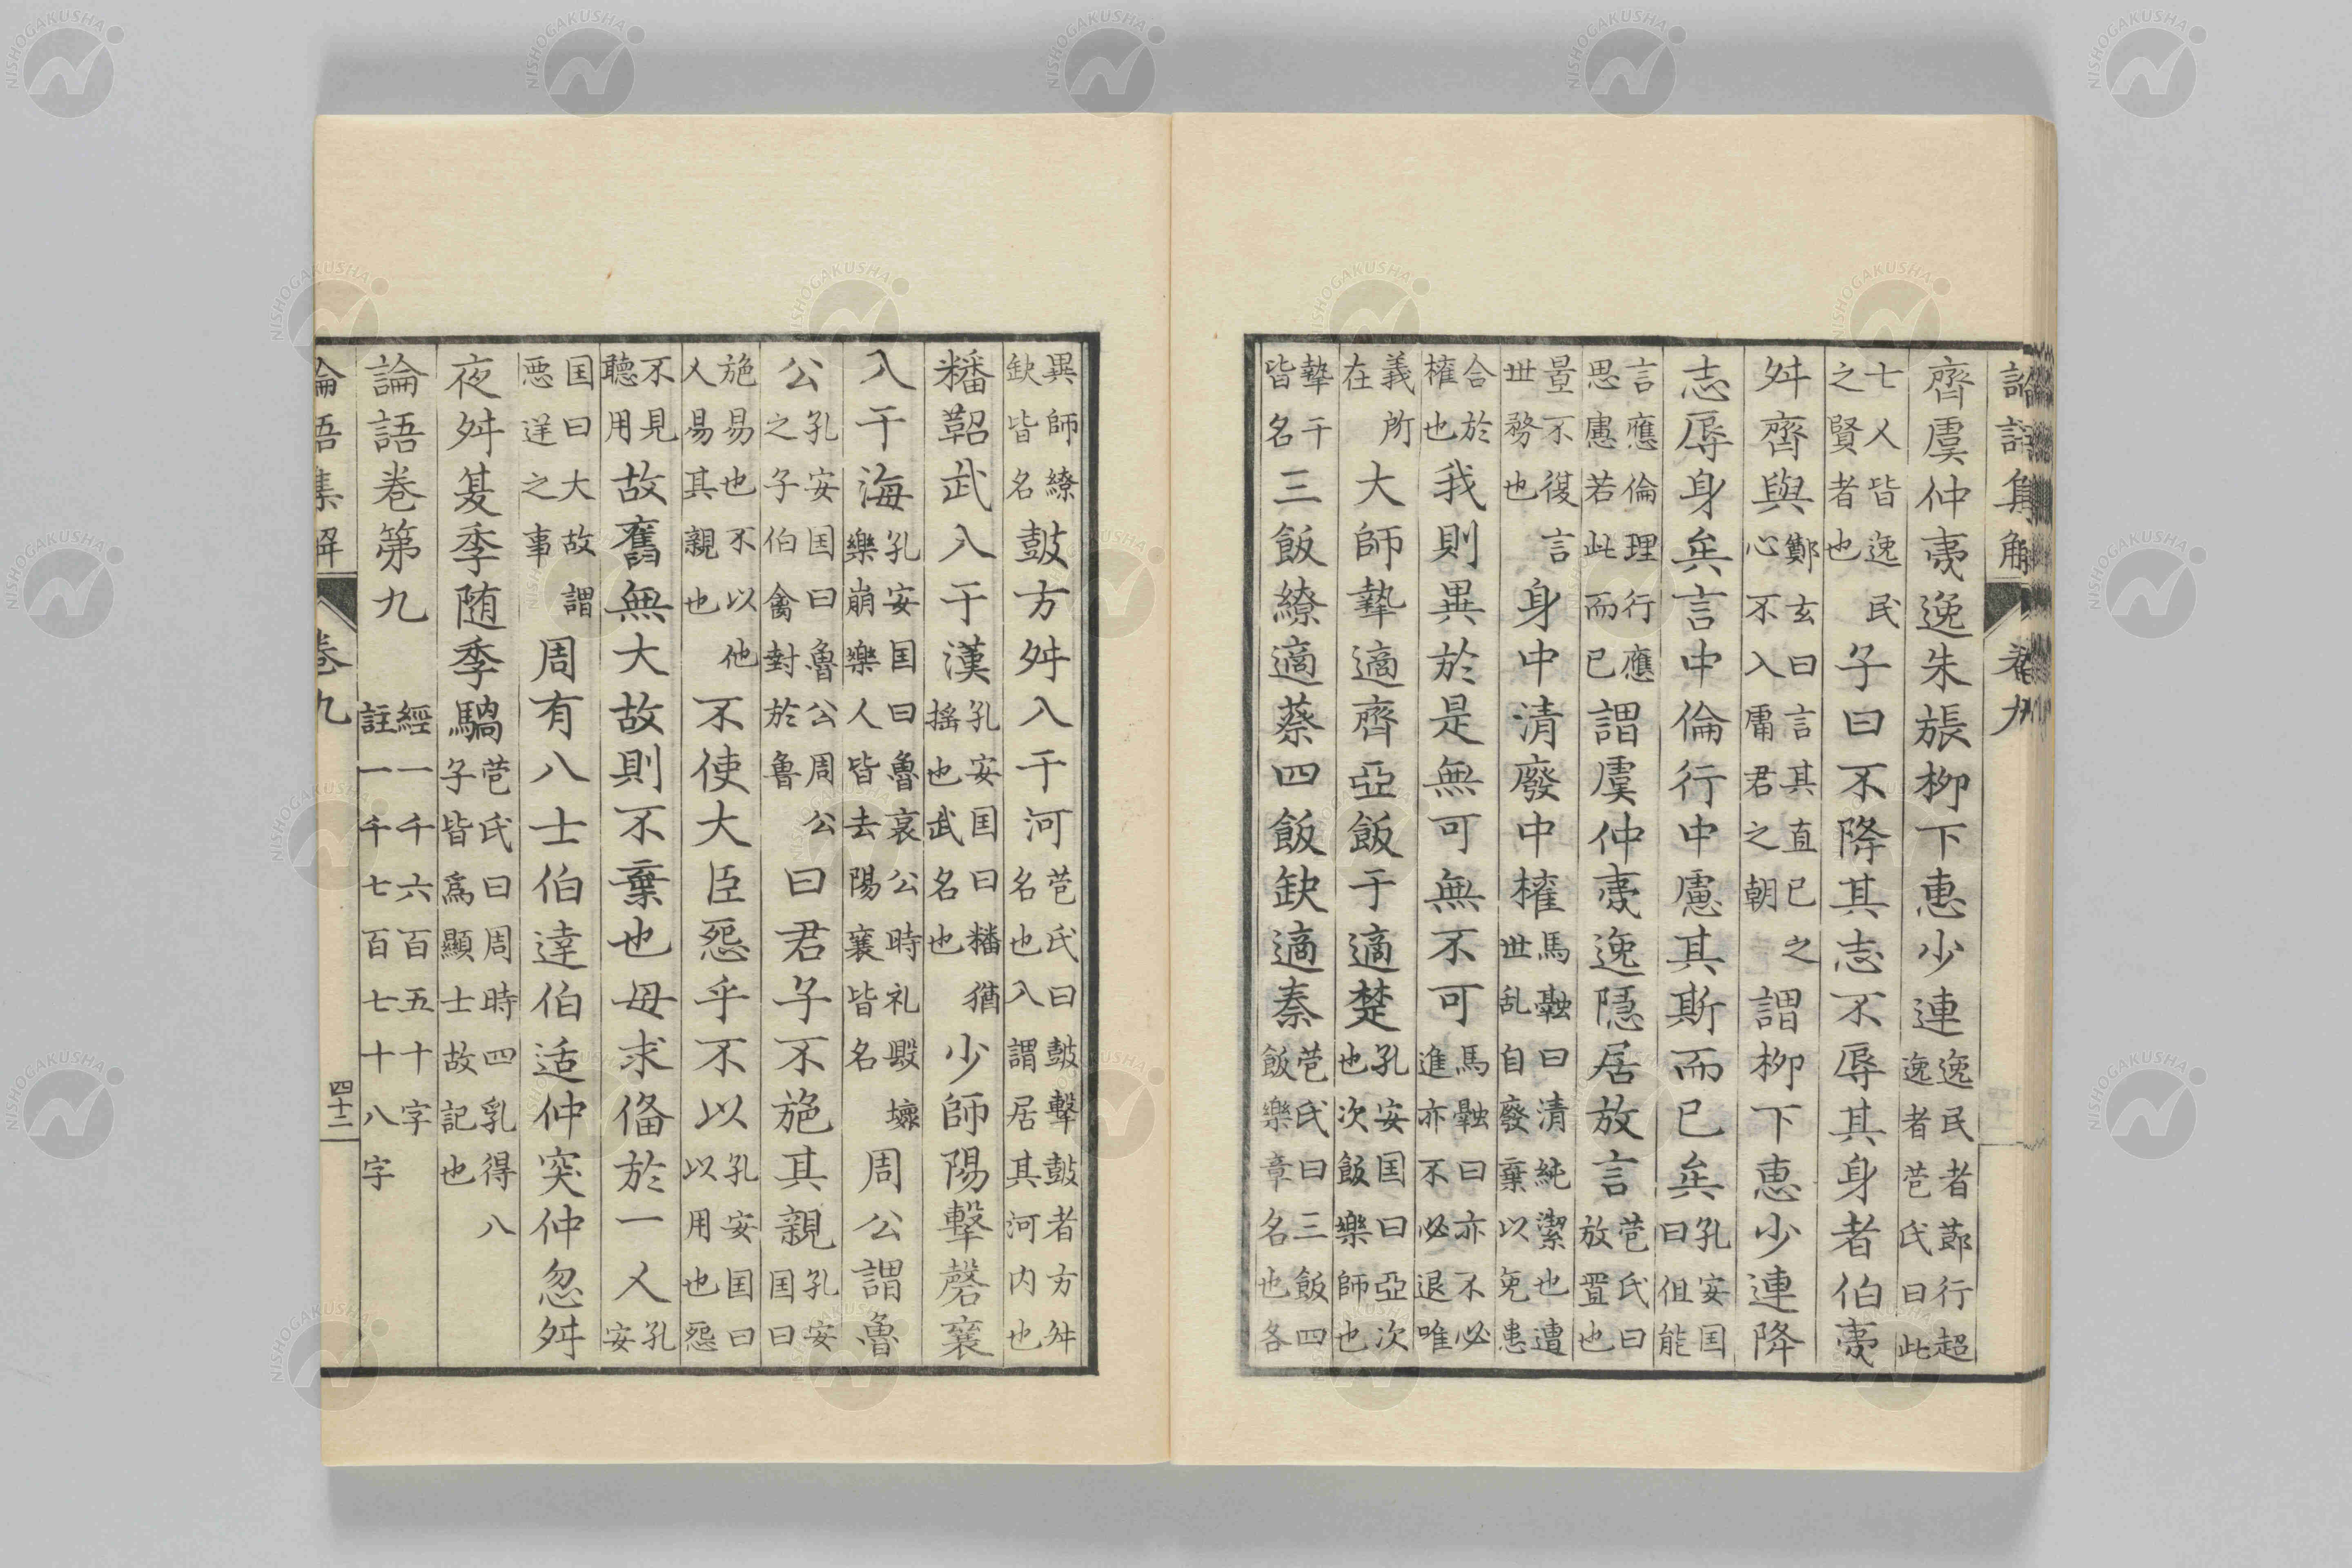 論語集解 卷九
齊虞仲夷逸朱張柳下惠少連逸民者莭行超逸者苞氏曰此
七人皆逸民之賢者也子曰不降其志不辱其身者伯夷
舛齊與鄭玄曰言其直己之心不入庸君之朝謂柳下惠少連降
志辱身矣言中倫行中慮其斯而已矣孔安国曰伹能
言應倫理行應思慮若此而已謂虞仲夷逸隱居放言苞氏曰放置也
置不復言世務也身中清廢中權馬融曰清純潔也遭世乱自廢棄以免患
合於權也我則異於是無可無不可馬融曰亦不必進亦不必退唯
義所在大師摯適齊亞飯于適楚孔安国曰亞次也次飯樂師也
摯干皆名三飯繚適蔡四飯缺適秦苞氏曰三飯四飯樂章名也各
異師繚缺皆名鼓方舛入于河苞氏曰鼓擊鼓者方舛名也入謂居其河内也
播鞀武入于漢孔安国曰播猶搖也武名也少師陽擊磬襄
入于海孔安国曰魯哀公時礼毀壞樂崩樂人皆去陽襄皆名周公謂魯
公孔安国曰魯公周公之子伯禽封於魯曰君子不施其親孔安国曰
施易也不以他人易其親也不使大臣怨乎不以孔安国曰以用也怨
不見聽用故舊無大故則不棄也毋求俻於一人孔安
国曰大故謂惡逆之事周有八士伯達伯适仲突仲忽舛
夜舛夏季随季騧苞氏曰周時四乳得八子皆爲顯士故記也
論語卷第九 經一千六百五十字註一千七百七十八字
論語集解 卷九 四十三